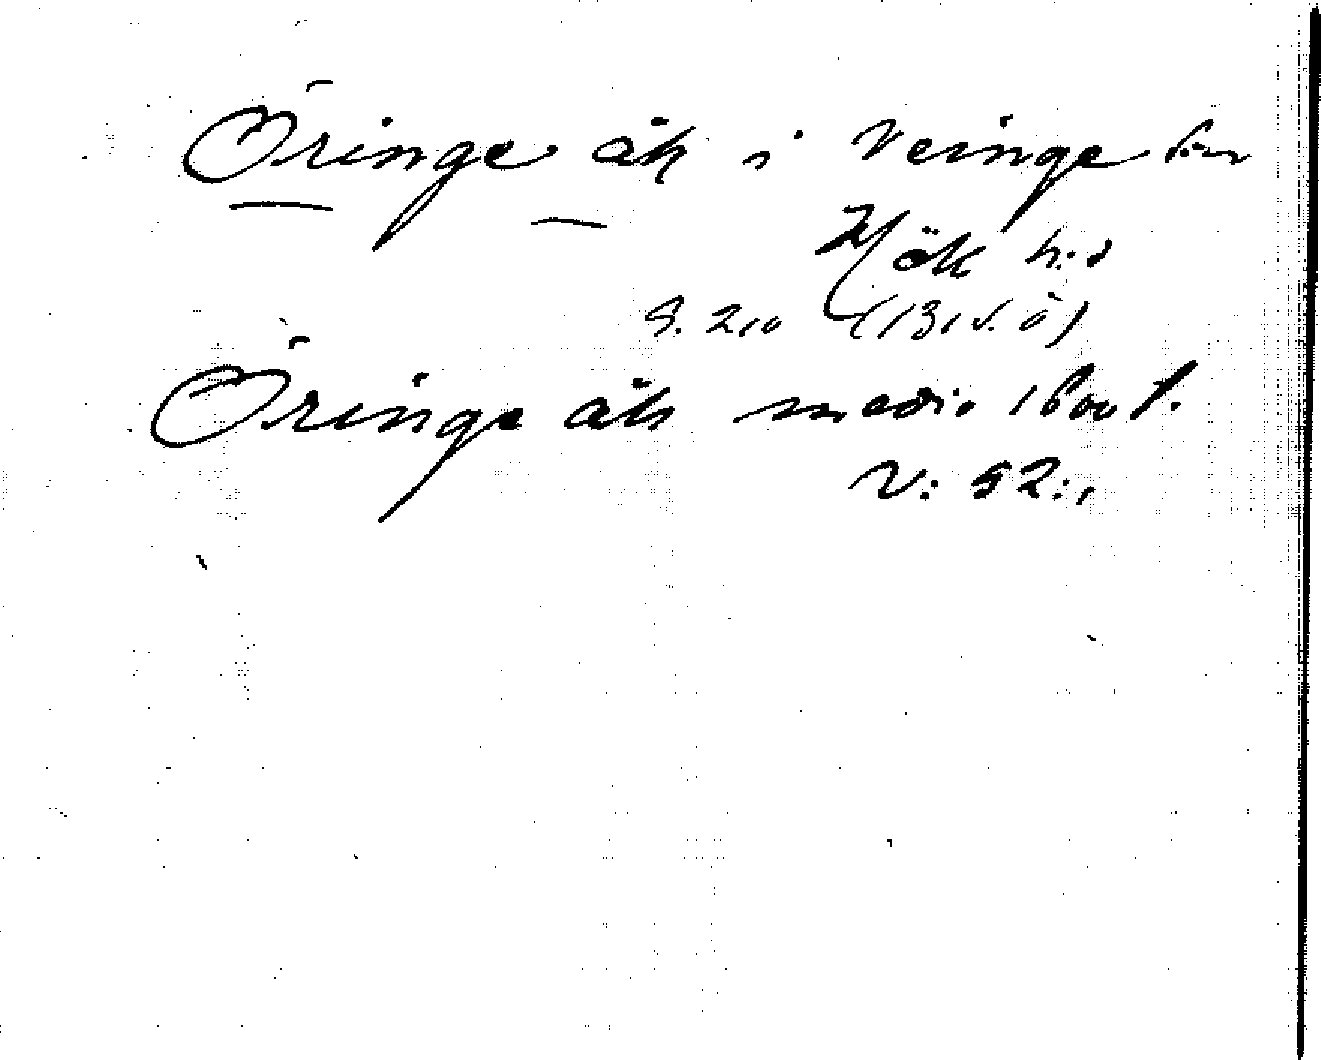 Öringe åh i Veinge sn
Hök h:d
S. 210 (1311. ö)
Öringe åh medio 1600 t.
V: 52:1